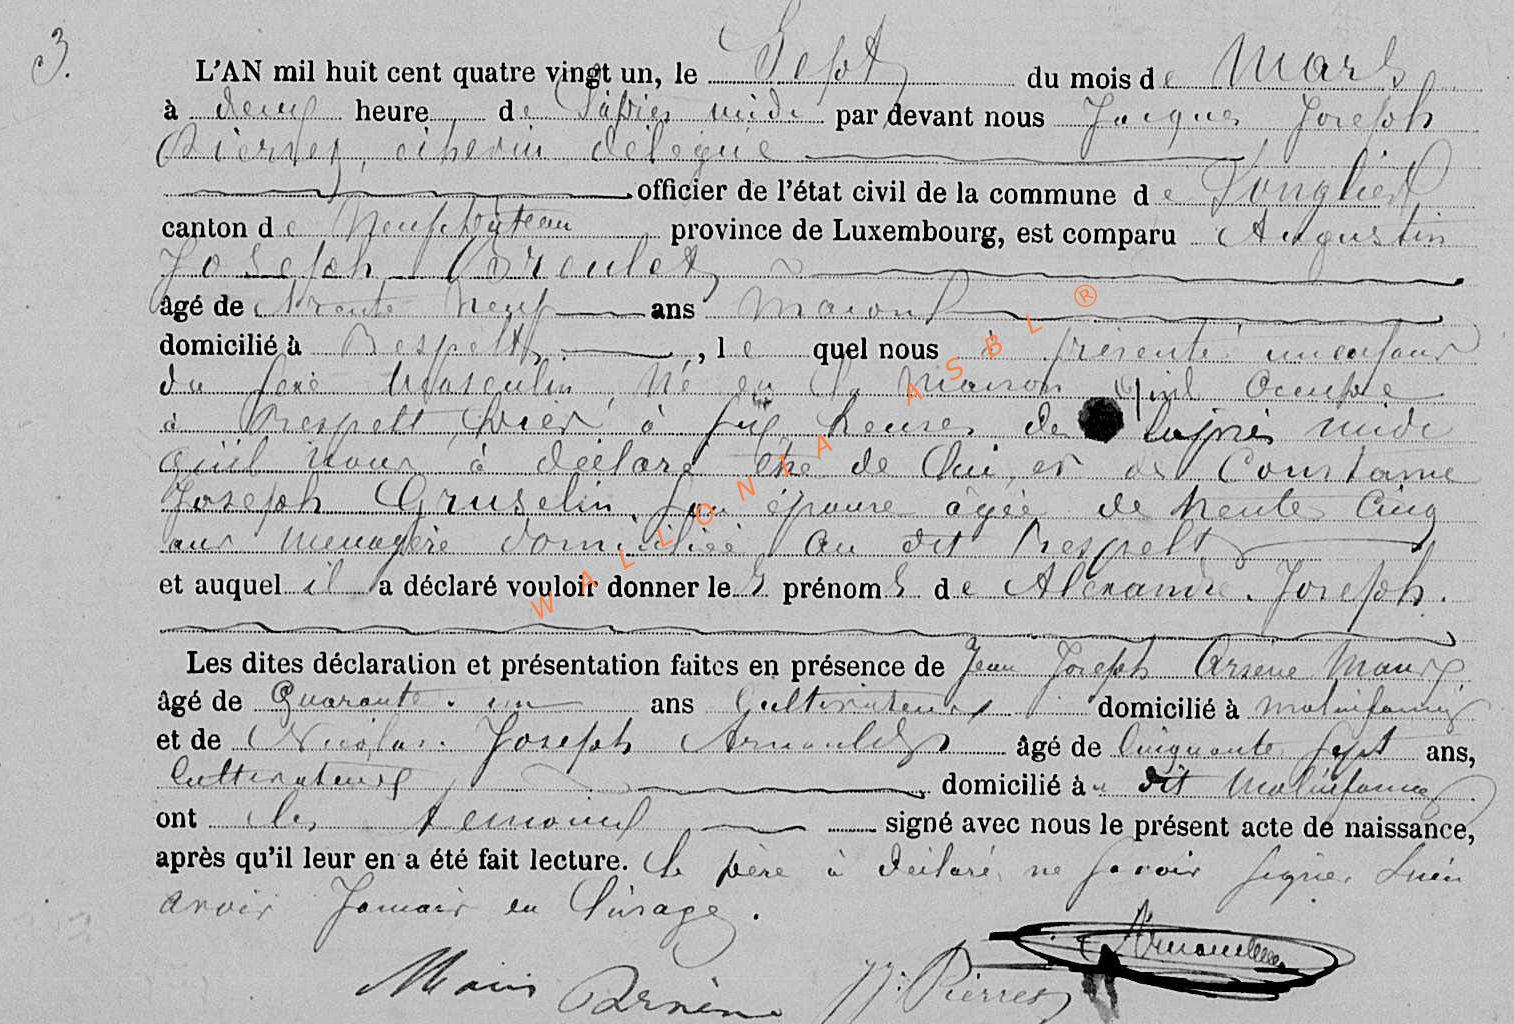 3.
L'AN mil huit cent quatre vingt un, le Sept du mois de Mars
à deux heure de l'après midi par devant nous Jacques Joseph
Pierret, échevin délégué
officier de l'état civil de la commune de Longlier
canton de Neufchâteau province de Luxembourg, est comparu Augustin
Joseph
âgé de trente neuf ans maçon
domicilié à Respelt, le quel nous à présenté un enfant
du sexe Masculin, Né en la Maison qu'il occupe
à Respelt, hier à six heures de l'après midi
qu'il nous à déclaré être de lui et de Constance
Joseph Gruselin, son épouse âgée de trente cinq
ans menagère domiciliée au dit Respelt
et auquel il a déclaré vouloir donner les prénoms de Alexandre Joseph.
Les dites déclaration et présentation faites en présence de Jean Joseph Arsène
âgé de Quarante un ans Cultivateur domicilié à Molinfaing
et de Nicolas Joseph âgé de Cinquante sept ans,
Cultivateur domicilié au dit Molinfaing
ont les temoins signé avec nous le présent acte de naissance,
après qu'il leur en a été fait lecture. le père à déclaré ne savoir signer
avoir Jamais eu l'usage.
Arsène
JJ: Pierret
WALLONIA ASBL ®